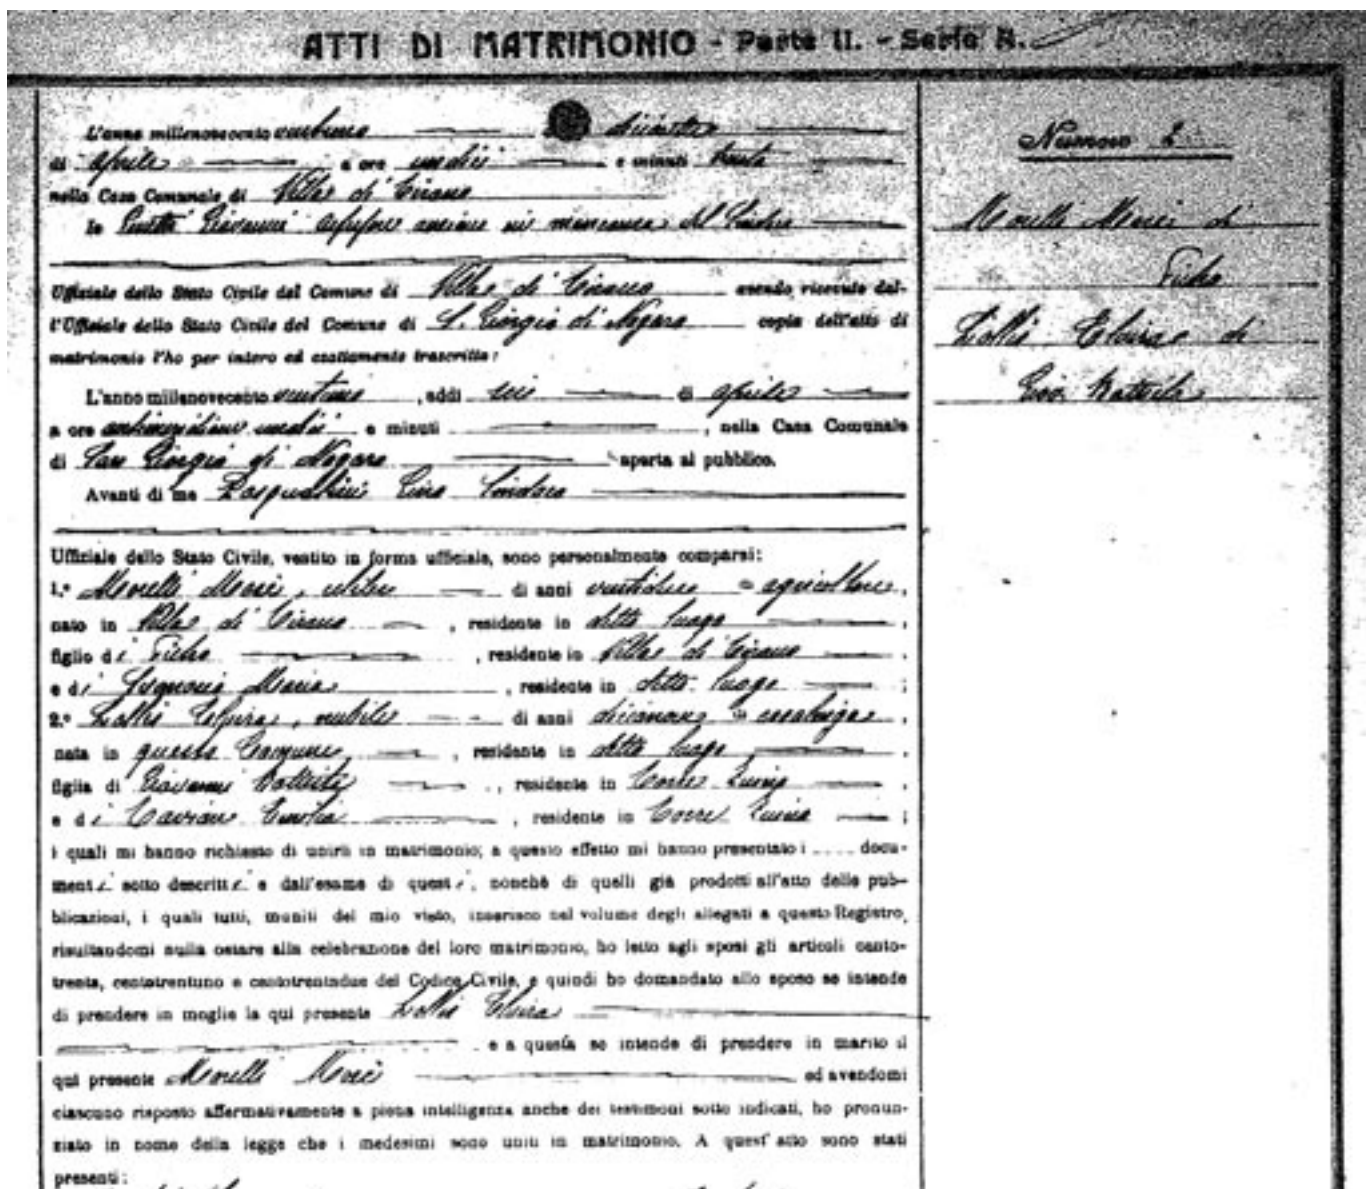 ATTI DI MATRIMONIO - Parte II. - Serie B.
L'anno millenovecento ventuno addì diciotto
di aprile a ore undici e minuti trenta
nella Casa Comunale di Villa di Tirano
Io Giovanni assessore anziano in mancanza del Sindaco
Ufficiale dello Stato Civile del Comune di Villa di Tirano avendo ricevuto dal-
l'Ufficiale dello Stato Civile del Comune di S. Giorgio di Nogaro copia dell'atto di
matrimonio l'ho per intero ed esattamente trascritta:
L'anno millenovecento ventuno, addì sei di aprile
a ore antimeridiane undici e minuti , nella Casa Comunale
di San Giorgio di Nogaro aperta al pubblico.
Avanti di me Pasqualini Sindaco
Ufficiale dello Stato Civile, vestito in forma ufficiale, sono personalmente comparsi:
1.° Morelli , celibe di anni ventidue = agricoltore,
nato in Villa di Tirano , residente in detto luogo ,
figlio di Pietro , residente in Villa di Tirano .
e di Maria , residente in detto luogo ;
2.° Elvira, nubile di anni diciannove = casalinga,
nata in questo Comune , residente in detto luogo ,
figlia di Giovanni Battista , residente in Torre Zuino ,
e di Emilia , residente in Torre Zuino ;
i quali mi hanno richiesto di unirli in matrimonio; a questo effetto mi hanno presentato i .... docu-
menti sotto descritti e dall'esame di questi, nonchè di quelli già prodotti all'atto delle pub-
blicazioni, i quali tutti, muniti del mio visto, inserisco nel volume degli allegati a questo Registro,
risultandomi nulla ostare alla celebrazione del loro matrimonio, ho letto agli sposi gli articoli cento-
trenta, centotrentuno e centotrentadue del Codice Civile, e quindi ho domandato allo sposo se intende
di prendere in moglie la qui presente Elvira
e a questa se intende di prendere in marito il
qui presente Morelli ed avendomi
ciascuno risposto affermativamente a piena intelligenza anche dei testimoni sotto indicati, ho pronun-
ziato in nome della legge che i medesimi sono uniti in matrimonio. A quest'atto sono stati
presenti:
Numero 2
Morelli di
Pietro
Elvira di
Giov. Battista